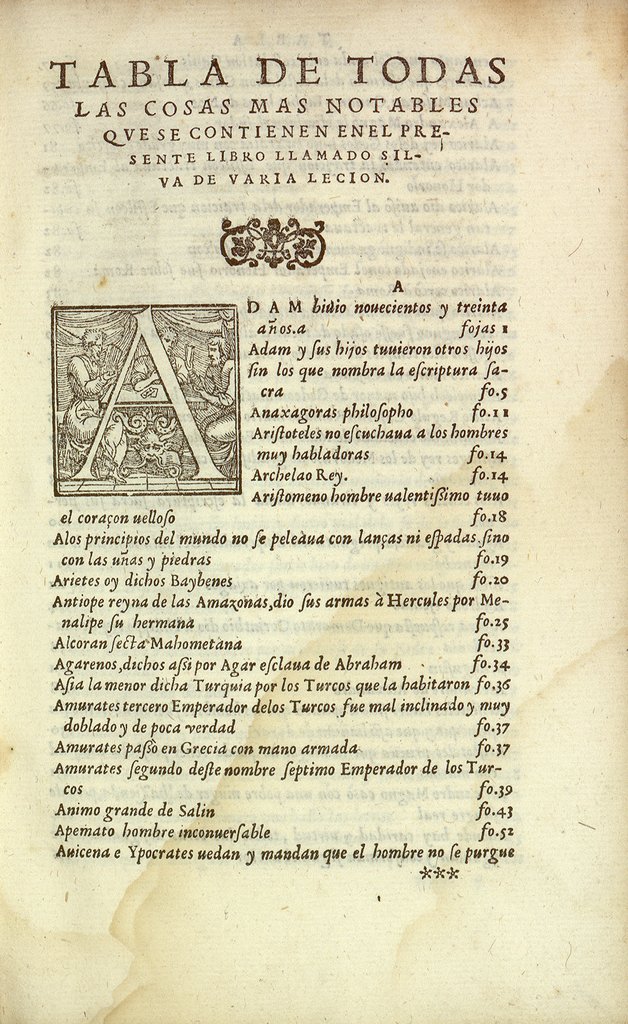 TABLA DE TODAS
LAS COSAS MAS NOTABLES
QVE SE CONTIENEN ENEL PRE-
SENTE LIBRO LLAMADO SIL-
VA DE VARIA LECION.
A
ADAM biuio nouecientos y treinta
años.a fojas 1
Adam y ſus hijos tuuieron otros hijos
ſin los que nombra la eſcriptura ſa-
cra fo.5
Anaxagoras philoſopho fo.11
Ariſtoteles no eſcuchaua a los hombres
muy habladoras fo.14
Archelao Rey. fo.14
Ariſtomeno hombre ualentiſsimo tuuo
el coraçon uelloſo fo.18
Alos principios del mundo no ſe peleàua con lanças ni eſpadas ſino
con las uñas y piedras fo.19
Arietes oy dichos Baybenes fo.20
Antiope reyna de las Amazonas,dio ſus armas à Hercules por Me-
nalipe ſu hermana fo.25
Alcoran ſecta Mahometana fo.33
Agarenos,dichos aſsi por Agar eſclaua de Abraham fo.34
Aſia la menor dicha Turquia por los Turcos que la habitaron fo.36
Amurates tercero Emperador delos Turcos fue mal inclinado y muy
doblado y de poca verdad fo.37
Amurates paſsò en Grecia con mano armada fo.37
Amurates ſegundo deſte nombre ſeptimo Emperador de los Tur-
cos fo.39
Animo grande de Salin fo.43
Apemato hombre inconuerſable fo.52
Auicena e Ypocrates uedan y mandan que el hombre no ſe purgue
***